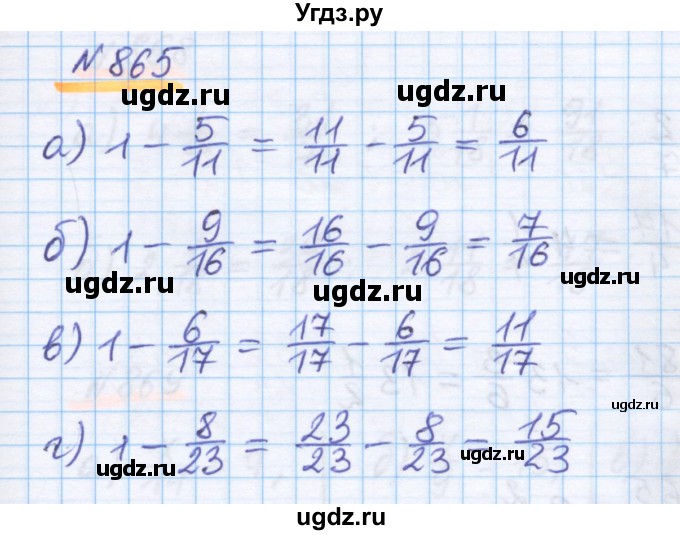 Угдз.ру
N 865
ugdz.ru
ugdz.ru
а) 1 - 5/11 = 11/11 - 5/11 = 6/11
б) 1 - 9/16 = 16/16 - 9/16 = 7/16
ugdz.ru
ugdz.ru
в) 1 - 6/17 = 17/17 - 6/17 = 11/17
ugdz.ru
г) 1 - 8/23 = 23/23 - 8/23 - 15/23
ugdz.ru
ugdz.ru
ugdz.ru